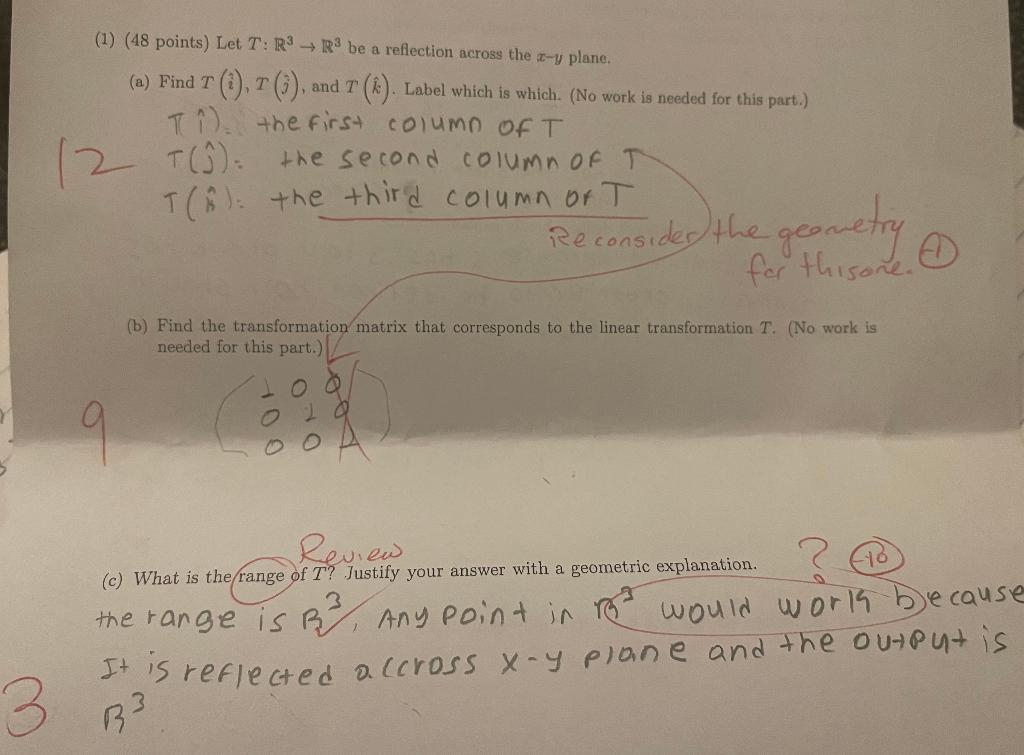 (1) (48 points) Let T: ℝ³ → ℝ³ be a reflection across the x–y plane.
(a) Find T (î), T (ĵ), and T (k̂). Label which is which. (No work is needed for this part.)
T î): the first column of T
12 T(ĵ): the second column of T
T(k̂): the third column of T
Reconsider the geometry
for this one. -1
(b) Find the transformation matrix that corresponds to the linear transformation T. (No work is
needed for this part.)
1 0 0
0 1 0
9
0 0 1
Review
(c) What is the range of T? Justify your answer with a geometric explanation. ?
the range is R³, Any point in R³ would work because
It is reflected accross x-y plane and the output is
3 R³